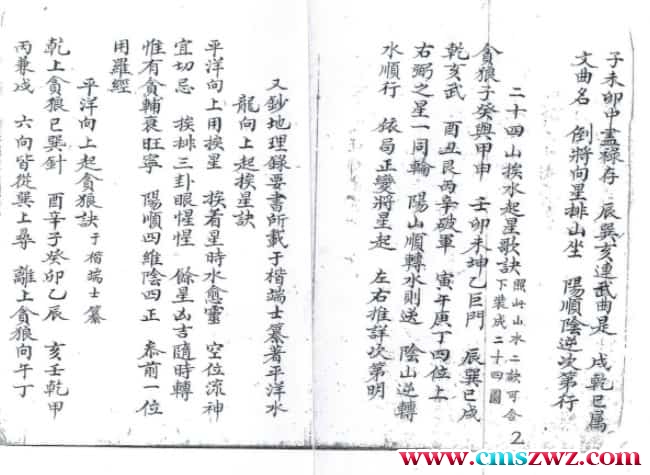 子未卯中盡祿存　辰巽亥連武曲是　戌乾巳屬
文曲名　倒將向星排山坐　陽順陰逆次第行
二十四山挨水起星歌訣 照此山水二訣可合下裝成二十四圖
貪狼子癸與甲申　壬卯未坤乙巨門　辰巽巳戌
乾亥武　酉丑艮丙辛破軍　寅午庚丁四位上
右弼之星一同輪　陽山順轉水則逆　陰山逆轉
水順行　依局正變將星起　左右推詳次第明
2
又鈔地理錄要書所載于楷端士纂著平洋水
龍向上起挨星訣
平洋向上用挨星　挨着星時水愈靈　空位流神
宜切忌　挨排三卦眼惺惺　餘星凶吉隨時轉
惟有貪輔衰旺寧　陽順四維陰四正　泰前一位
用羅經
平洋向上起貪狼訣 于楷端士纂
乾上貪狼巳巽針　酉辛子癸卯乙辰　亥壬乾甲
丙兼戌　六向皆從巽上尋　離上貪狼向午丁
www.cmszwz.com